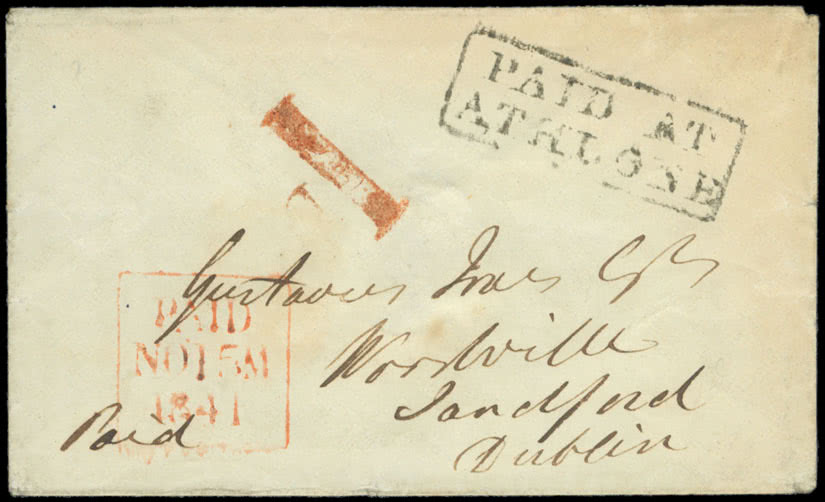 PAID AT
ATHLONE
1
Gustavus
Woodville
Sandford
Dublin
PAID
NO 15 M
1841
Paid